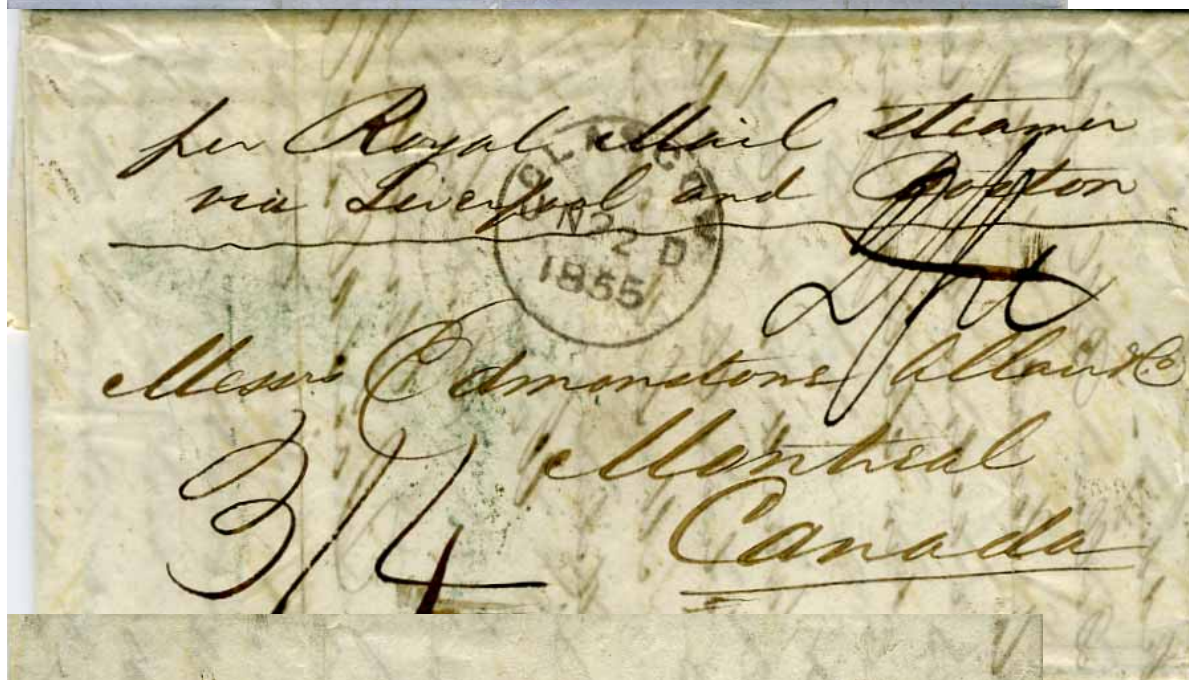 per Royal Mail steamer
via Liverpool and Boston
GLASGOW
22 D
1855
Messrs Edmonstone Allan & Co
Montreal
Canada
3/4